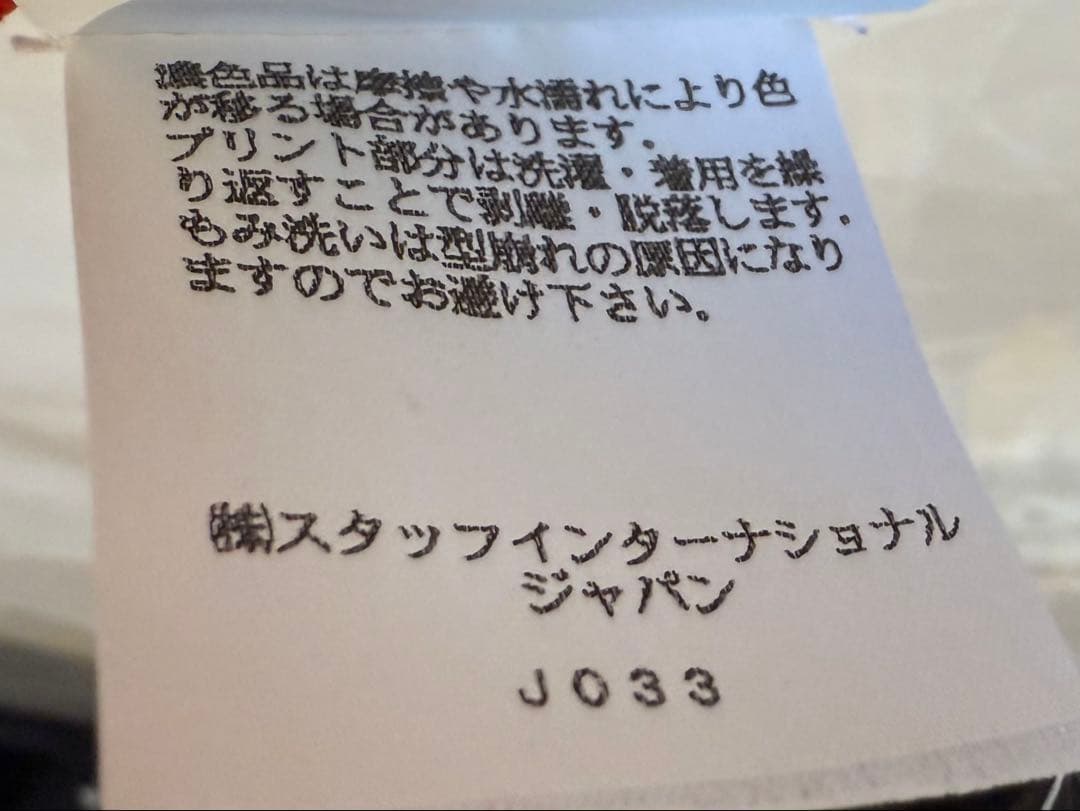 濃色品は摩擦や水濡れにより色
が移る場合があります.
プリント部分は洗濯・着用を繰
り返すことで剥離・脱落します.
もみ洗いは型崩れの原因になり
ますのでお避け下さい。
㈱スタッフインターナショナル
ジャパン
J033